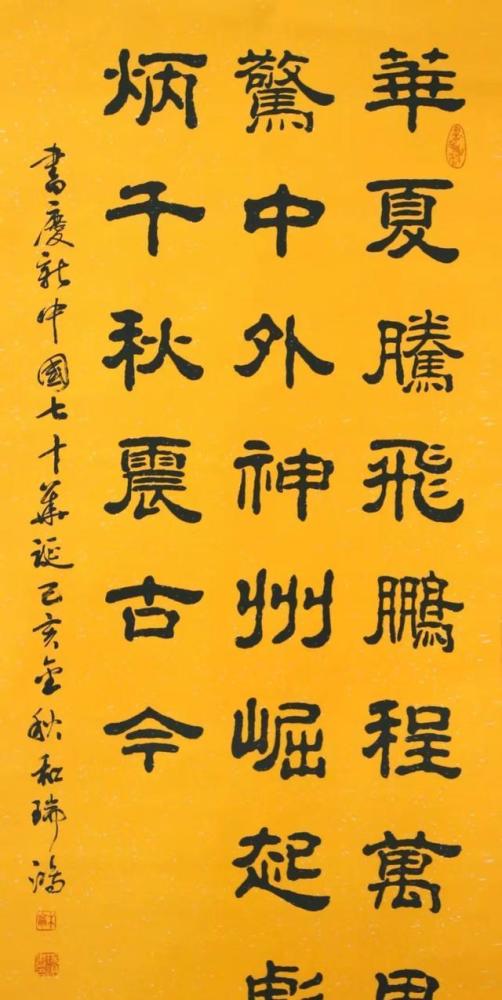 華夏騰飛鵬程萬里
驚中外神州崛起彪
炳千秋震古今
書慶新中國七十華誕己亥金秋和瑞鴻